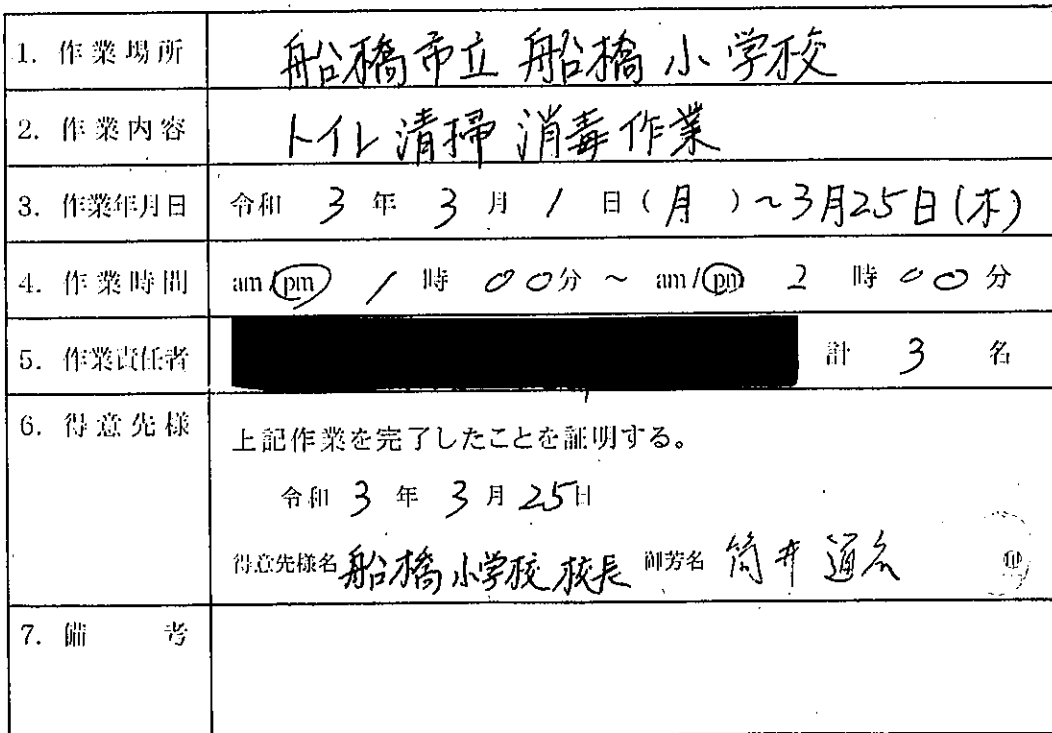 1. 作業場所 船橋市立 船橋小学校
2. 作業内容 トイレ清掃 消毒作業
3. 作業年月日 令和 3 年 3 月 1 日 (月) ~3月25日(木)
4. 作業時間 am/pm 1 時 00分 ~ am/pm 2 時 00 分
5. 作業責任者 計 3 名
6. 得意先様 上記作業を完了したことを証明する。
令和 3 年 3 月 25日
得意先様名 船橋小学校 校長 御芳名 筒井 道 ㊞
7. 備考